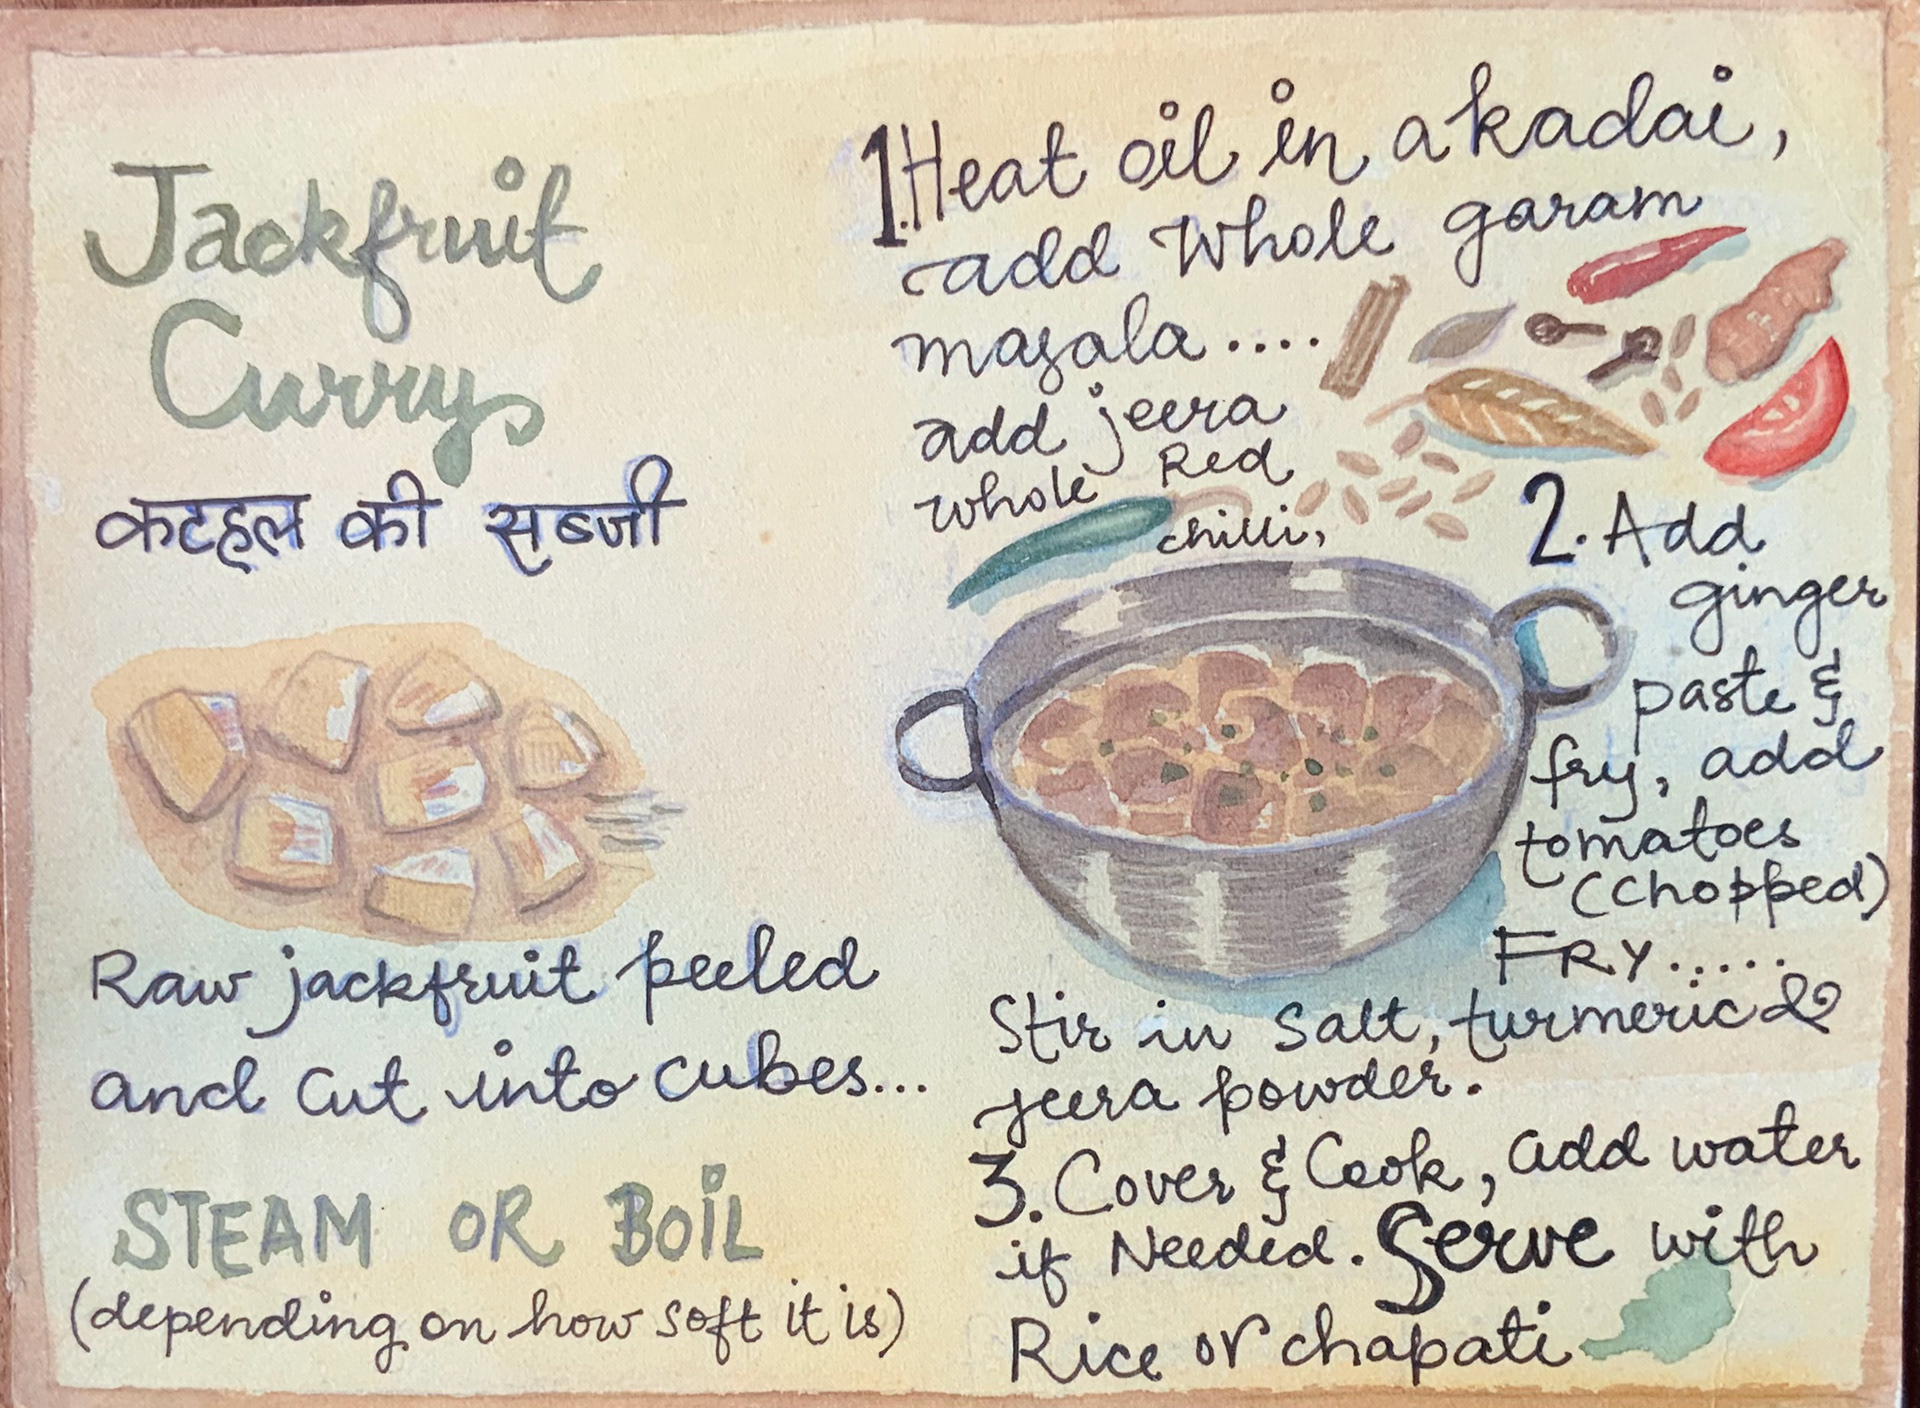 Jackfruit
Curry
कटहल की सब्जी
Raw jackfruit peeled
and cut into cubes...
STEAM OR BOIL
(depending on how soft it is)
1. Heat oil in a kadai,
add whole garam
masala....
add jeera
whole Red
chilli,
2. Add
ginger
paste &
fry, add
tomatoes
(chopped)
FRY.....
Stir in salt, turmeric &
jeera powder.
3. Cover & Cook, add water
if Needed. Serve with
Rice or chapati